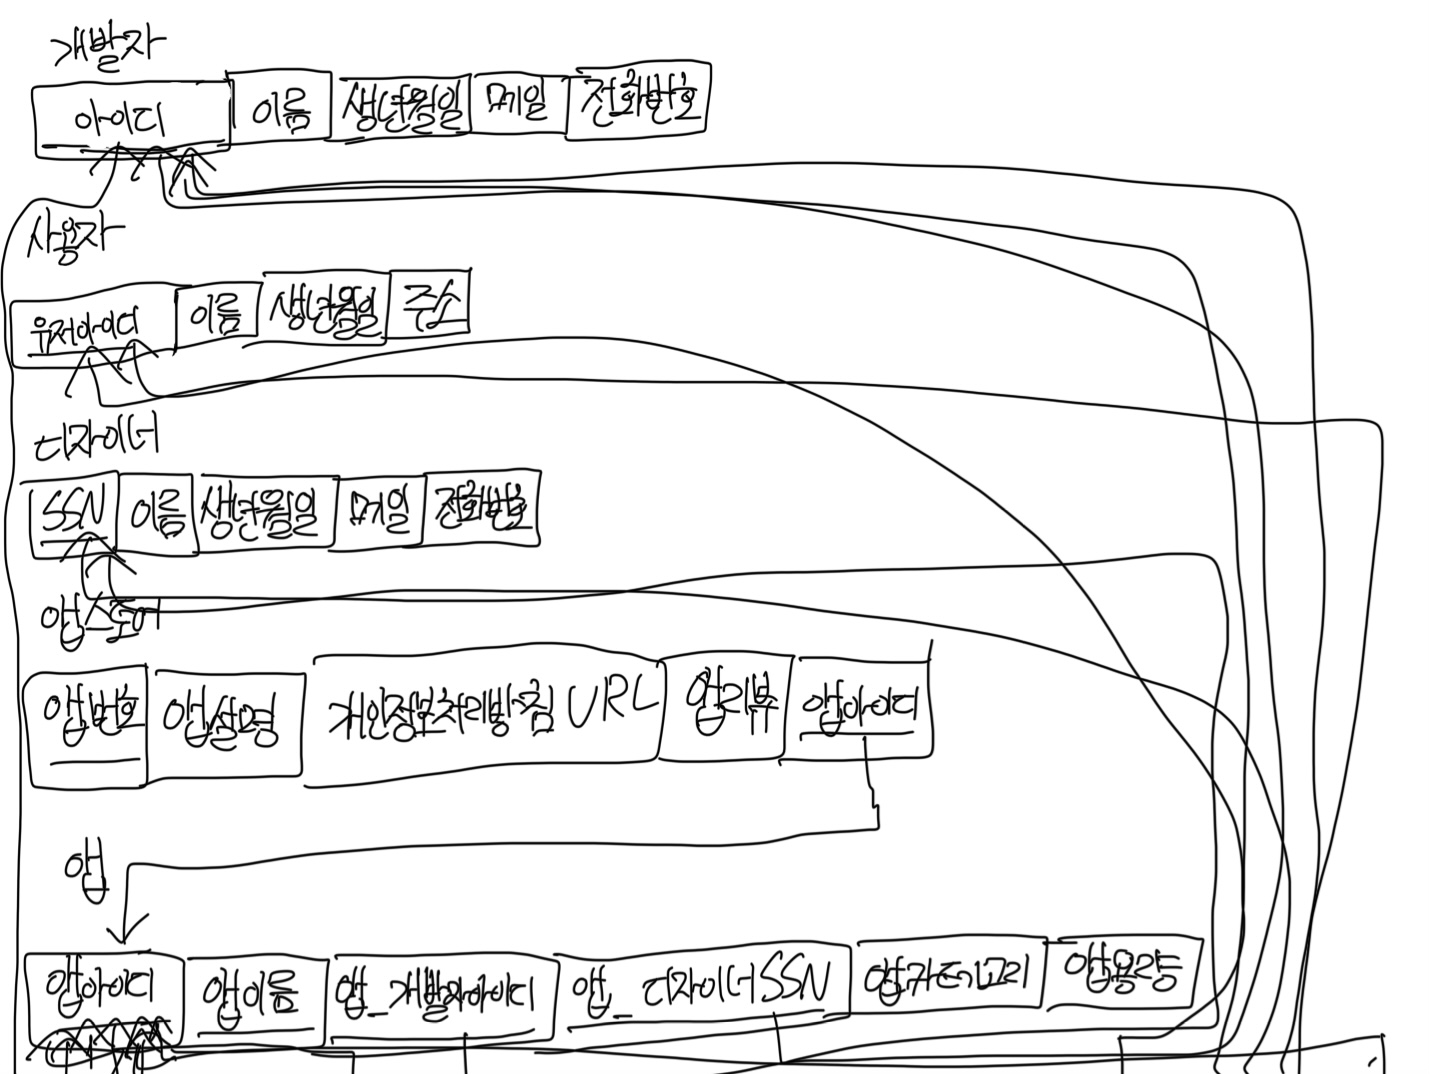 개발자
아이디 이름 생년월일 메일 전화번호
사용자
유저아이디 이름 생년월일 주소
디자이너
SSN 이름 생년월일 메일 전화번호
앱스토어
앱번호 앱설명 개인정보처리방침 URL 앱리뷰 앱아이디
앱
앱아이디 앱이름 앱_개발자아이디 앱_디자이너SSN 앱카테고리 앱용량